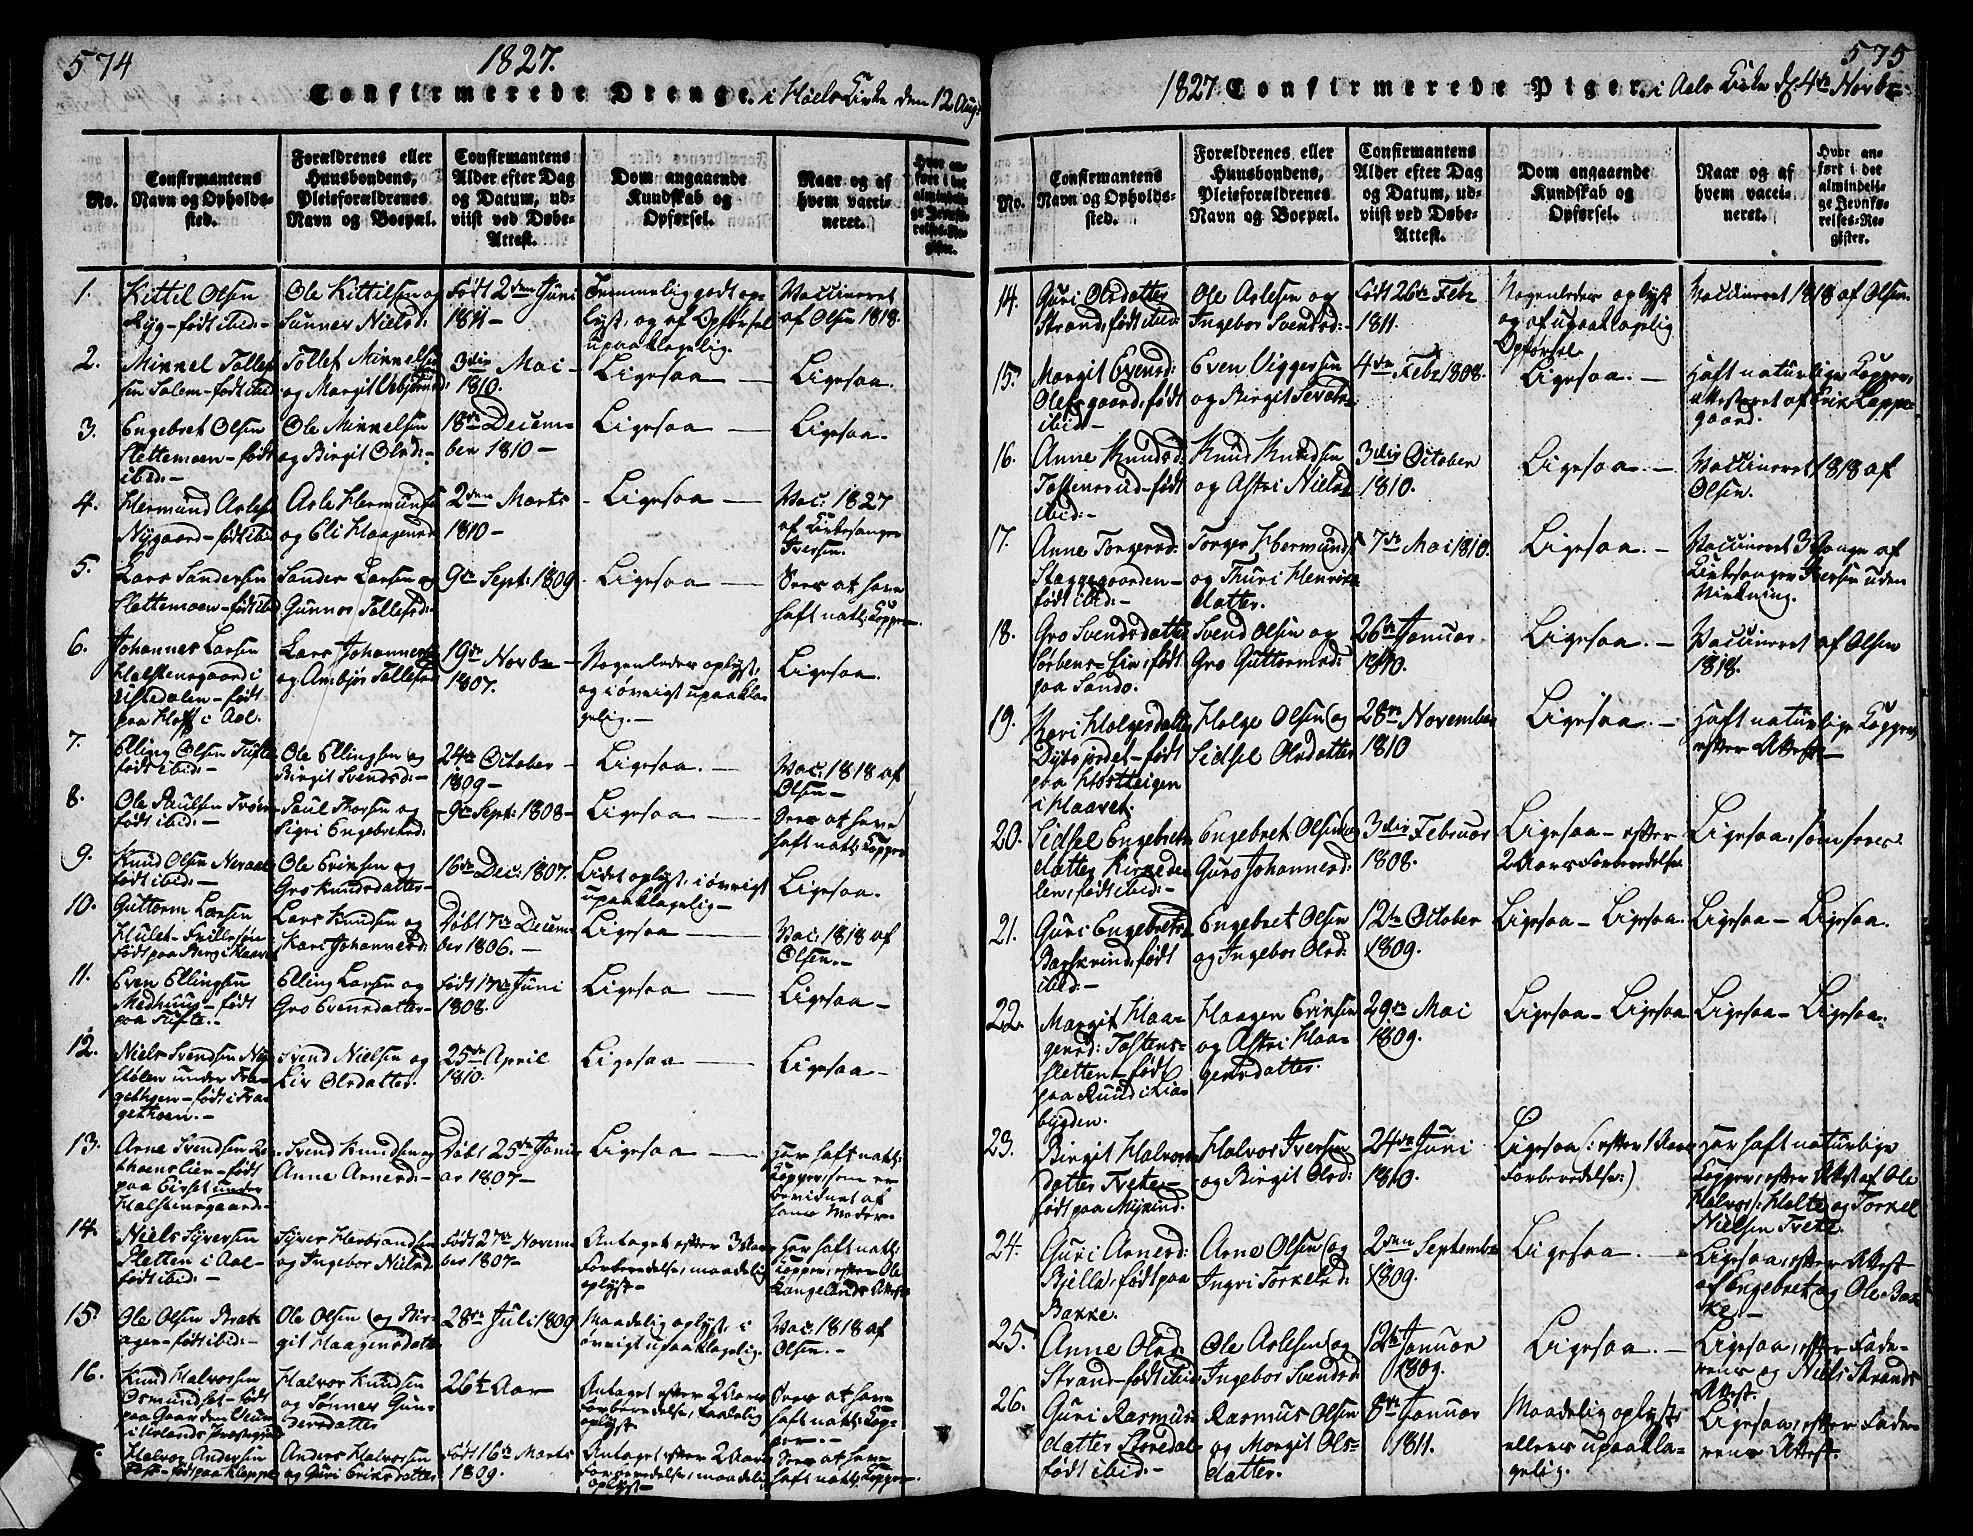 574
1827.
Confirmerede Drenge. i Hoels Kirke den 12 Aug:
No.
Confirmantens Navn og Opholdssted.
Forældrenes eller Huusbondens, Pleieforældrenes Navn og Boepæl.
Confirmantens Alder efter Dag og Datum, udviist ved Døbe-Attest.
Dom angaaende Kundskab og Opførsel.
Naar og af hvem vaccineret.
Hvor anført i det almindelige Jevnførelses-Register.
1.
Kittel Olsen
Ryg – født ibid: –
Ole Kittilsen og
Gunner Nielsd:
Født 2den Juni
1811 –
Temmelig godt oplyst, og af Opførsel
upaaklagelig.
Vaccineret
af Olsen 1818.
2.
Mikkel Tollefsen Solem – født ibid:
Tollef Mikkelsen
og Margit Asbjørnsd:
3die Mai –
1810.
Ligesaa –
Ligesaa.
3.
Engebret Olsen
Slettemoen – født
ibid: –
Ole Mikkelsen
og Birgit Olsd: –
18de December 1810 –
Ligesaa –
Ligesaa.
4.
Hermund Aslesen
Nygaard – født ibid
Asle Hermundsen
og Eli Haagensd
2den Marts
1810 –
Ligesaa –
Vac: 1827
af Kirkesanger
Iversen.
5.
Lars Sandersen
Slettemoen – født ibid
Sander Larsen og
Gunnor Tollefsd: –
9de Sept: 1809
Ligesaa –
Sees at have
haft natl: Kopper.
6.
Johannes Larsen
Halstensgaard i
Ustedalen – født
paa Hoff i Aal.
Lars Johannesen
og Ambjør Tollefsd
19de Novbr –
1807.
Nogenledes oplyst,
og i øvrigt upaaklagelig. –
Ligesaa.
7.
Elling Olsen Tufte
født ibid: –
Ole Ellingsen og
Birgit Svendsd: –
24de October –
1809 –
Ligesaa. –
Vac: 1818 af
Olsen –
8.
Ole Paulsen
født ibid: –
Paul Thorsen og
Sigri Engebretsd:
9de Sept: 1808 –
Ligesaa –
Sees at have
haft natl: Kopper
9.
Knud Olsen Noraal
født ibid: –
Ole Eriksen og
Gro Knudsdatter –
16de Dec: 1807.
Lidet oplyst, i øvrigt
upaaklagelig –
Ligesaa.
10.
Guttorm Larsen
Hulet –
født paa Berg i Haavet
Lars Knudsen og
Kari Johannesd:
Døbt 7de December 1806. –
Ligesaa –
Vac: 1818 af
Olsen. –
11.
Even Ellingsen
Medhuus – født
paa Tufte. –
Elling Larsen og
Gro Evensdatter –
Født 17de Juni
1808.
Ligesaa –
Ligesaa –
12.
Niels Svendsen
stølen under Fragethoen – født i Fragethoen. –
Svend Nielsen og
Liv Olsdatter.
25de April
1810.
Ligesaa –
Ligesaa –
13.
Arne Svendsen
thoenslien – født
paa Eirset under
Halstensgaard. –
Svend Knudsen og
Anne Arnesd: –
Døbt 25de Januar 1807 –
Ligesaa –
Har haft natl:
Kopper, som er
bevidnet af
hans Moder –
14.
Niels Syversen
Sletten i Aal –
født ibid: –
Syver Herbrandsen
og Ingebor Nielsd
Født 27de November 1807 –
Antaget efter 3 Aars
Forberedelse, maadelig
oplyst –
Har haft natl:
Kopper, efter Ole
Attest
15.
Ole Olsen
agen – født ibid: –
Ole Olsen og Birgit Haagensdatter
28de Juli 1809
Maadelig oplyst, i
øvrigt upaaklagelig.
Vac: 1818 af
Olsen. –
16.
Knud Halvorsen
Osmundset – født
paa Gaarden Veum
i Urlands Præstegjeld
Halvor Knudsen
og Sønner Gundersdatter
26de Aar
Antaget efter 2 Aars
Forberedelse, maadelig
oplyst
Sees at have
haft natl: Kopper. –
Halvor Andersen
– født paa Kleppe
Anders Halvorsen
og Guri Eriksdatter
Født 16de Marts
1809.
Antaget efter 2 Aars
Forberedelse, maadelig
oplyst –
Sees at have
haft natl: Kopper.
575
1827 Confirmerede Piger. i Aals Kirke d. 4de Novbr
No.
Confirmantens Navn og Opholdssted.
Forældrenes eller Huusbondens, Pleieforældrenes Navn og Boepæl.
Confirmantens Alder efter Dag og Datum, udviist ved Døbe-Attest.
Dom angaaende Kundskab og Opførsel.
Naar og af hvem vaccineret.
Hvor anført i det almindelige Jevnførelses-Register.
14.
Guri Olsdatter
Strand, født ibid:
Ole Aslesen og
Ingebor Svendsd: –
Født 26de Febr
1811.
Nogenledes oplyst
og af upaaklagelig
Opførsel.
Vaccineret 1818 af Olsen.
15.
Margit Evensd:
Olesgaard, født
ibid: –
Even Viggersen
og Birgit Sevatsd
4de Febr 1808.
Ligesaa. –
Haft naturlige Kopper,
attesteret af Erik Kappegaard.
16.
Anne Knudsd:
Tostensrud – født
ibid: –
Knud Knudsen
og Astri Nielsd
3die October
1810.
Ligesaa. –
Vaccineret 1818 af
Olsen.
17.
Anne Torgersd:
Staggegaarden –
født ibid: –
Torger Hermunds:
og Thuri Henriksdatter.
7de Mai 1810.
Ligesaa. –
Vaccineret 3 Gange af
Kirkesanger Iversen uden
Virkning.
18.
Gro Svendsdatter
født
paa Sando.
Svend Olsen og
Gro Guttormsd:
26de Januar
1810.
Ligesaa –
Vaccineret af Olsen
1818.
19.
Kari Holgersdatter
– født
paa Hostteigen
i Haavet.
Holge Olsen og
Sidsel Olsdatter
28de November
1810
Ligesaa –
Haft naturlige Kopper
efter Attest –
20.
Sidsel Engebretsdatter
født ibid: –
Engebret Olsen og
Guro Johannesd:
3die Februar
1808.
Ligesaa – efter
2 Aars Forberedelse.
Ligesaa, som sees
21.
Guri Engebretsd
Barskrind, født
ibid: –
Engebret Olsen
og Ingebor Olsd:
12te October
1809.
Ligesaa – Ligesaa.
Ligesaa – Ligesaa.
22.
Margit Haagensd: Tostenssletten – født
paa Ruud i Liabygden.
Haagen Eriksen
og Astri Haagensdatter.
29de Mai
1809.
Ligesaa – Ligesaa
Ligesaa – Ligesaa.
23.
Birgit Halvorsdatter Tvete –
født paa Myking.
Halvor Iversen
og Birgit Olsd:
24de Juni
1810.
Ligesaa (: efter 1 Aars
Forberedelse:)
Har haft naturlige
Kopper, efter Attest af Ole
Halvors: Holte og Torkel
Nielsen Tvete.
24.
Guri Arnesd:
Bjella, født paa
Bakke.
Arne Olsen og
Ingri Torkelsd:
2den September
1809.
Ligesaa. –
Ligesaa, efter Attest
af Engebret og Ole Bakke –
25.
Anne Olsd:
Strand – født ibid:
Ole Aslesen og
Ingebor Svendsd
12te Januar
1809.
Ligesaa. –
Ligesaa, efter Faderens og Niels Strands
Attest.
26.
Guri Rasmusdatter Storedal
født ibid: –
Rasmus Olsen
og Margit Olsdatter.
8de Januar
1811.
Maadelig oplyst
ellers upaaklagelig.
Ligesaa, efter Faderens Attest.